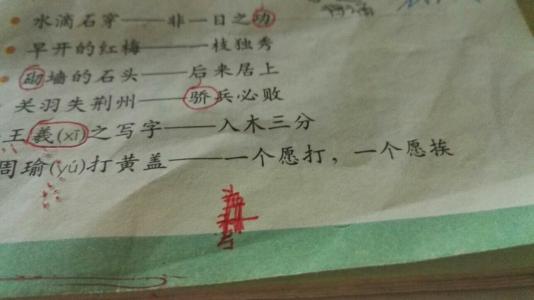 水滴石穿——非一日之功
早开的红梅——一枝独秀
砌墙的石头——后来居上
关羽失荆州——骄兵必败
王羲(xī)之写字——入木三分
周瑜(yú)打黄盖——一个愿打，一个愿挨